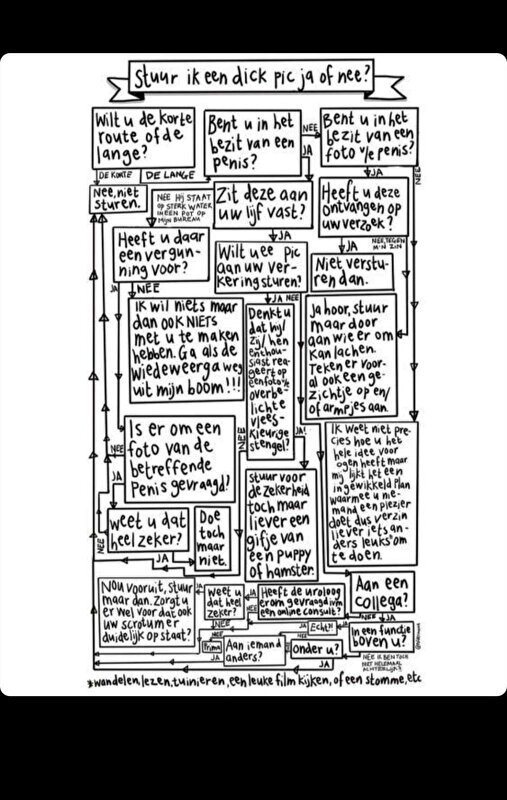 Stuur ik een dick pic ja of nee?
Wilt u de korte
route of de
lange?
DE KORTE
DE LANGE
Bent u in het
bezit van een
penis?
NEE
JA
Bent u in het
bezit van een
foto v/e penis?
JA
NEE
Nee, niet
sturen.
NEE HIJ STAAT
OP STERK WATER
IN EEN POT OP
MIJN BUREAU
Zit deze aan
uw lijf vast?
JA
Heeft u deze
ontvangen op
uw verzoek?
JA
NEE, TEGEN
M'N ZIN
Heeft u daar
een vergun-
ning voor?
NEE
Wilt u een pic
aan uw ver-
kering sturen?
JA
NEE
Niet verstu-
ren dan.
IK wil niets maar
dan ook NIETS
met u te maken
hebben. Ga als de
wiedeweerga weg
uit mijn boom!!!
Denkt u
dat hij/
zij/hen
enthou-
siast rea-
geert op
een foto v/e
overbe-
lichte
vlees-
kleurige
stengel?
NEE
JA!
Ja hoor, stuur
maar door
aan wie er om
kan lachen.
Teken er voor-
al ook een ge-
zichtje op en/
of armpjes aan.
Is er om een
foto van de
betreffende
penis gevraagd?
NEE
JA
IK weet niet pre-
cies hoe u het
hele idee voor
ogen heeft maar
mij lijkt het een
ingewikkeld plan
waarmee u nie-
mand een plezier
doet dus verzin
liever iets an-
ders leuks* om
te doen.
weet u dat
heel zeker?
NEE
JA
Doe
toch
maar
niet.
Stuur voor
de zekerheid
toch maar
liever een
gifje van
een puppy
of hamster.
Nou vooruit, stuur
maar dan. Zorgt u
er wel voor dat ook
uw scrotum er
duidelijk op staat?
JA
weet u dat
heel zeker?
NEE
JA
Heeft de uroloog
erom gevraagd ivm
een online consult?
NEE
Aan een
collega?
NEE
JA
Prima
NEE
Aan iemand
anders?
JA
NEE
Onder u?
JA
Echt?!
JA
In een functie
boven u?
NEE IK BEN TOCH
NIET HELEMAAL
ACHTERLIJK?
JA
*wandelen, lezen, tuinieren, een leuke film kijken, of een stomme, etc